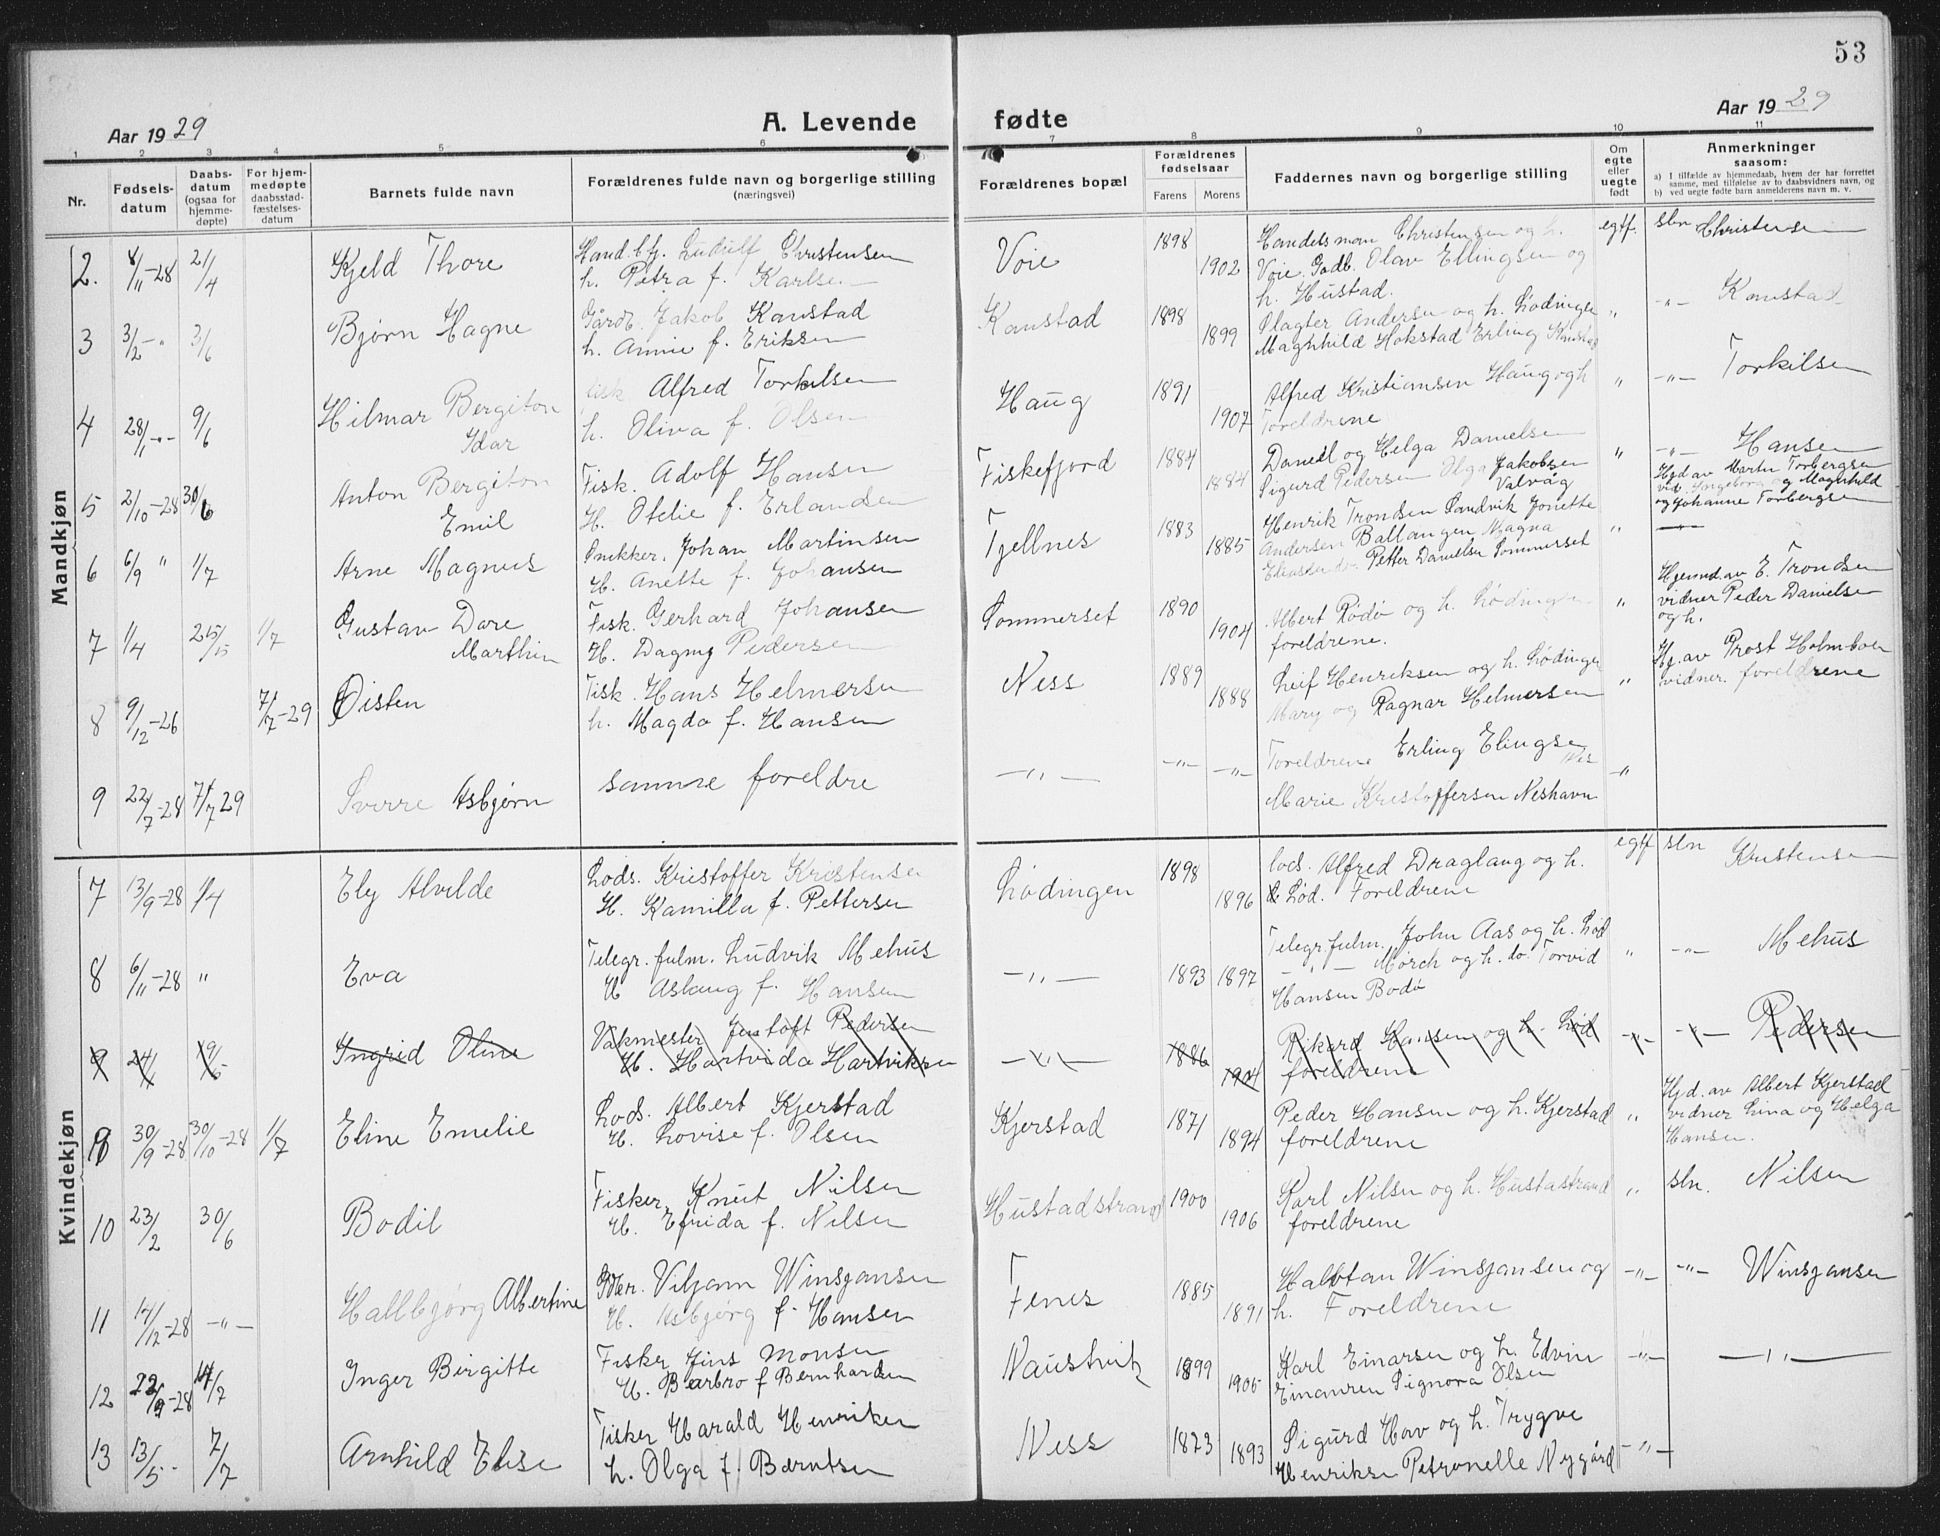 53
Aar 1929
A. Levende fødte
Aar 1929
1 2 3 4 5 6 7 8 9 10 11
Nr.
Fødsels-datum
Daabs-datum (ogsaa for hjemme-døpte)
For hjem-medøpte daabsstad-fæstelses-datum
Barnets fulde navn
Forældrenes fulde navn og borgerlige stilling (næringsvei)
Forældrenes bopæl
Forældrenes fødselsaar
Farens Morens
Faddernes navn og borgerlige stilling
Om egte eller uegte født
Anmerkninger saasom:
a) I tilfælde av hjemmedaab, hvem der har forrettet samme, med tilføielse av to daabsvidners navn, og
b) ved uegte fødte barn anmelderens navn m. v.
Mandkjøn
2. 8/11-28 21/4 Kjeld Thore
Handl.bfj. Ludvlf Christensen
h. Petra f. Karlsen
Voie 1898 1902
Handelsman Christensen og h.
Voie. Gadb. Olav Ellingsen og
h. Hustad.
egtf. sbn Christensen
3 3/2-" 3/6 Bjørn Hagne
Gårdb. Jakob Kanstad
h. Annie f. Eriksen
Kanstad 1898 1899
Slagter Andersen og h. Lødingen
Maghhild Hokstad Erling Kanstad
" -"- Kanstad
4 28/1-"- 9/6 Hilmar Bergiton
Idar
Fisk Alfred Torkilsen
h. Oliva f. Olsen
Haug 1891 1907
Alfred Kristiansen Haug og h
Foreldrene
" -"- Torkilsen
5 2/10-28 30/6 Anton Bergiton
Emil
Fisk. Adolf Hansen
H. Otelie f. Erlandsen
Fiskefjord 1884 1884
Daniel og Helga Danielsen
Sigurd Pedersen Olga Jakobsen
Valvåg
" -"- Hansen
6 6/9 " 1/7 Arne Magnus
Snikker. Johan Martinsen
H. Anette f. Johansen
Tjellnes 1883 1885
Henrik Trondsen Sandvik Jonette
Andersen Ballangen Magna
Petter Danielsen Sommerset
"
Hjd av Martin Torbergsen
vid. Ingeborg og Magnhild
og Johanne Torbergsen
7 1/4 1/7 Gustav Dare
Marthin
Fisk. Gerhard Johansen
H. Dagny Pedersen
Sommerset 1890 1904
Albert Rødø og h. Lødingen
foreldrene.
"
Hjemd. av E. Trondsen
vidner Peder Danielsen
og h.
8 9/12-26 7/7-29 Øisten
Fisk. Hans Helmersen
h. Magda f. Hansen
Ness 1889 1888
Leif Henriksen og h. Lødingen
Mary og Ragnar Helmersen
"
Hj. av Prost Holmboe
vidner. foreldrene
9 22/7-28 7/7 29 Sverre Asbjørn
samme foreldre
-"- -"- -"-
Foreldrene Erling Elingsen
Nes
Marie Kristoffersen Neshavn
-"
Kvindekjøn
7 13/9-28 1/4 Ely Alvilde
Lods. Kristoffer Kristensen
H. Kamilla f. Pettersen
Lødingen 1898 1896
lods. Alfred Draglang og h.
Lød. Foreldrene
egtf sln Kristensen
8 6/11-28 " Eva
Telegr. fulm. Ludvik Mehus
H Aslaug f. Hansen
-"- 1893 1897
Telegr. fulm. John Aas og h. Lød
-"- Mørch og h. do. Torvid
Hansen Bodø
" -"- Mehus
9 24/1 19/5 Ingrid Oline
Vakmester Jentoft Pedersen
H. Hartvida Hartviksen
-"- 1886 1904
Rikard Hansen og h. Lød
foreldrene
-"- -"- Pedersen
9 30/9-28 30/10-28 1/7 Eline Emelie
Lods. Albert Kjerstad
H. Lovise f. Olsen
Kjerstad 1871 1894
Peder Hansen og h. Kjerstad
foreldrene
"
Hjd. av Albert Kjerstad
vidner Lina og Helga
Hansen.
10 23/2 30/6 Bodil
Fisker Knut Nilsen
H. Efrida f. Nilsen
Hustadstrand 1900 1906
Karl Nilsen og h. Hustastrand
foreldrene
" sln. Nilsen
11 17/12-28 -"- Hallbjørg Albertine
Viljann Winsjansen
H. Asbjørg f. Hansen
Fenes 1885 1891
Halvtan Winsjansen og
h. Foreldrene
-"- -"- Winsjansen
12 22/9-28 14/7 Inger Birgitte
Fisker Jins Monsen
H. Barbro f Bernhardsen
Naustvik 1899 1905
Karl Einarsen og h. Edvin
Einansen Signora Olsen
-"- -"-
13 13/5-- 7/7 Arnhild Elise
Fisker Harald Henriksen
h. Olga f. Berntsen
Ness 1873 1893
Sigurd Hov og h. Trygve
Henriksen Petronelle Nygård
-"-